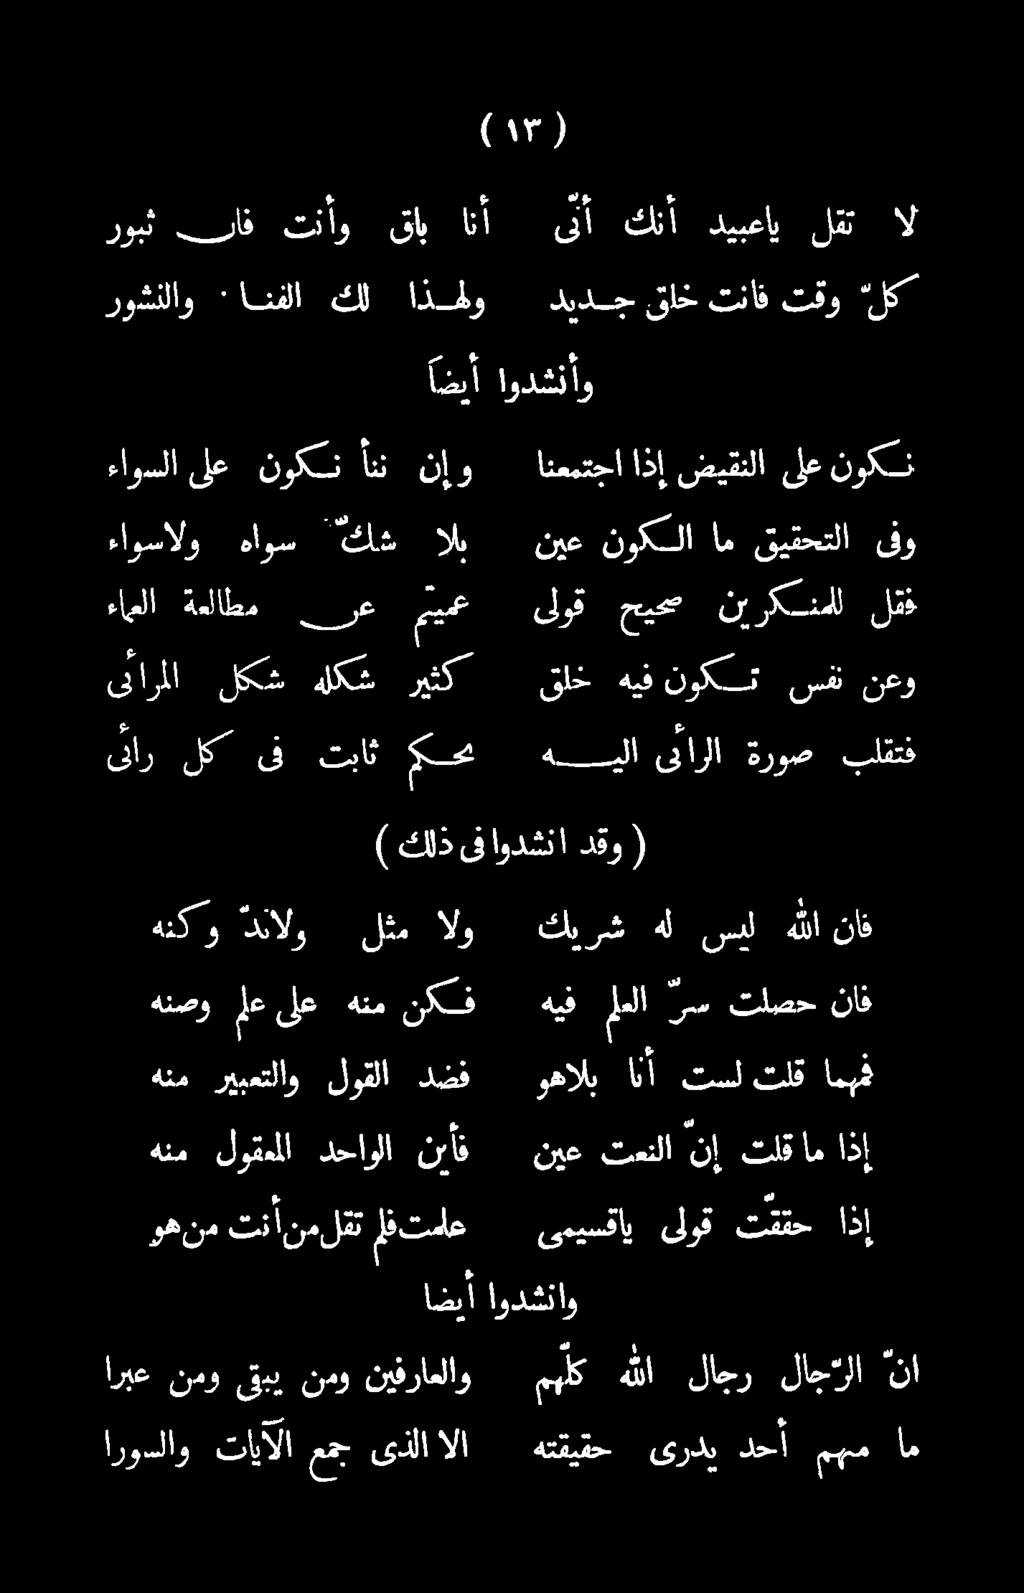 ( ١٣ )
لا تقل ياعبيد أنك أنّى أنا باق وأنت فان ثبور
كلّ وقت فانت خلق جديد ولهذا لك الفنا والنشور
وأنشدوا أيضاً
نكون على النقيض إذا اجتمعنا وإن ننأ نكون على السواء
وفى التحقيق ما الكون عين بلا شكّ سواه ولاسواء
فقل للمنكرين صحيح قولى عميتم عن مطالعة العماء
وعن نفس تكون فيه خلق كثير شكله شكل المرائى
فتقلب صورة الرائى اليه بحكم ثابت فى كل رائى
( وقد انشدوا فى ذلك )
فان الله ليس له شريك ولا مثل ولاندّ وكنه
فان حصلت سرّ العلم فيه فكن منه على علم وصنه
فمهما قلت لست أنا بلاهو فضد القول والتعبير منه
إذا ما قلت إنّ النعت عين فأين الواحد المعقول منه
إذا حققّت قولى ياقسيمى علمت فلم تقل من أنت من هو
وانشدوا أيضا
انّ الرّجال رجال الله كلّهم والعارفين ومن يبقى ومن عبرا
ما منهم أحد يدرى حقيقته الا الذى جمع الآيات والسورا